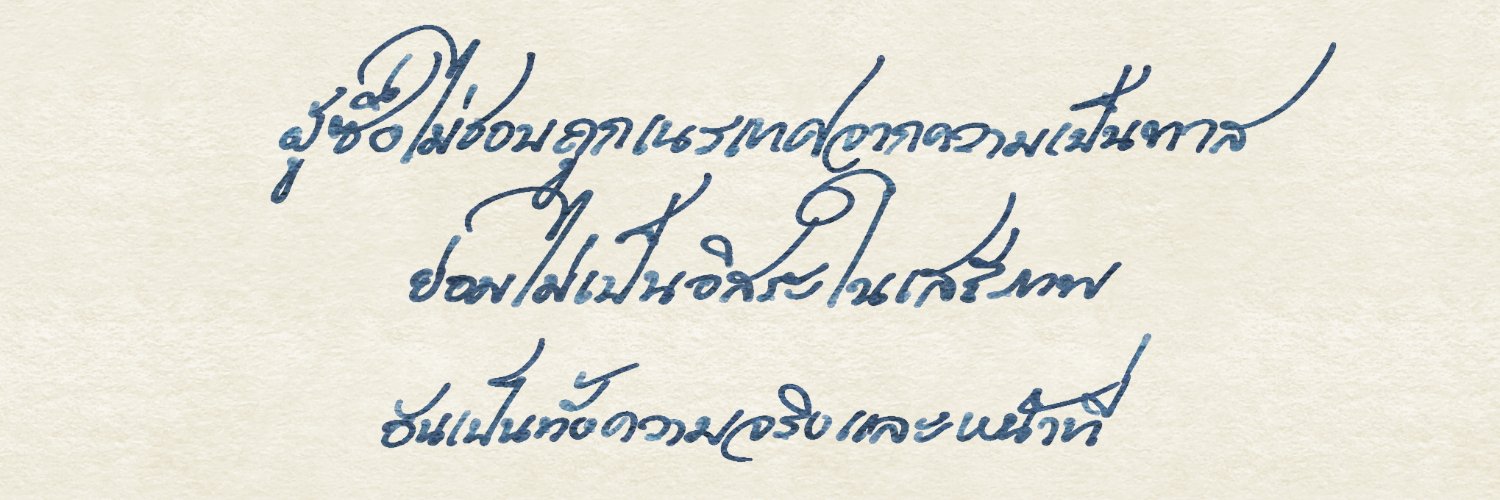 ผู้ซื่อไม่ชอบถูกเนรเทศจากความเป็นทาส
ย่อมไม่เป็นอิสระในเสรีเทพ
อันเป็นทั้งความจริงและหน้าที่